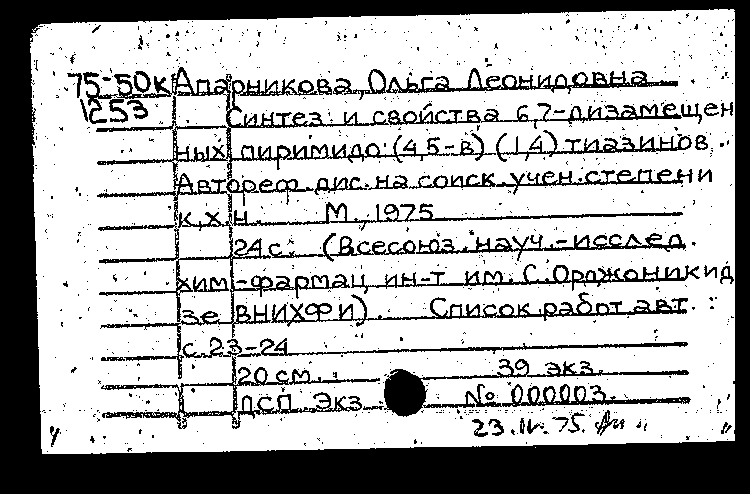 75-50к Апарникова, Ольга Леонидовна
1253 Синтез и свойства 6,7-дизамещен
ных пиримидо (4,5-в) (1,4) тиазинов.
Автореф. дис. на соиск. учен. степени
к.х.н. М., 1975
24 с. (Всесоюз. науч.-исслед.
хим-фармац. ин-т им. С. Орджоникид
зе ВНИХФИ). Список работ авт. :
с. 23-24
20 см. 39 экз.
ДСП. Экз. № 000003.
23.IV.75.